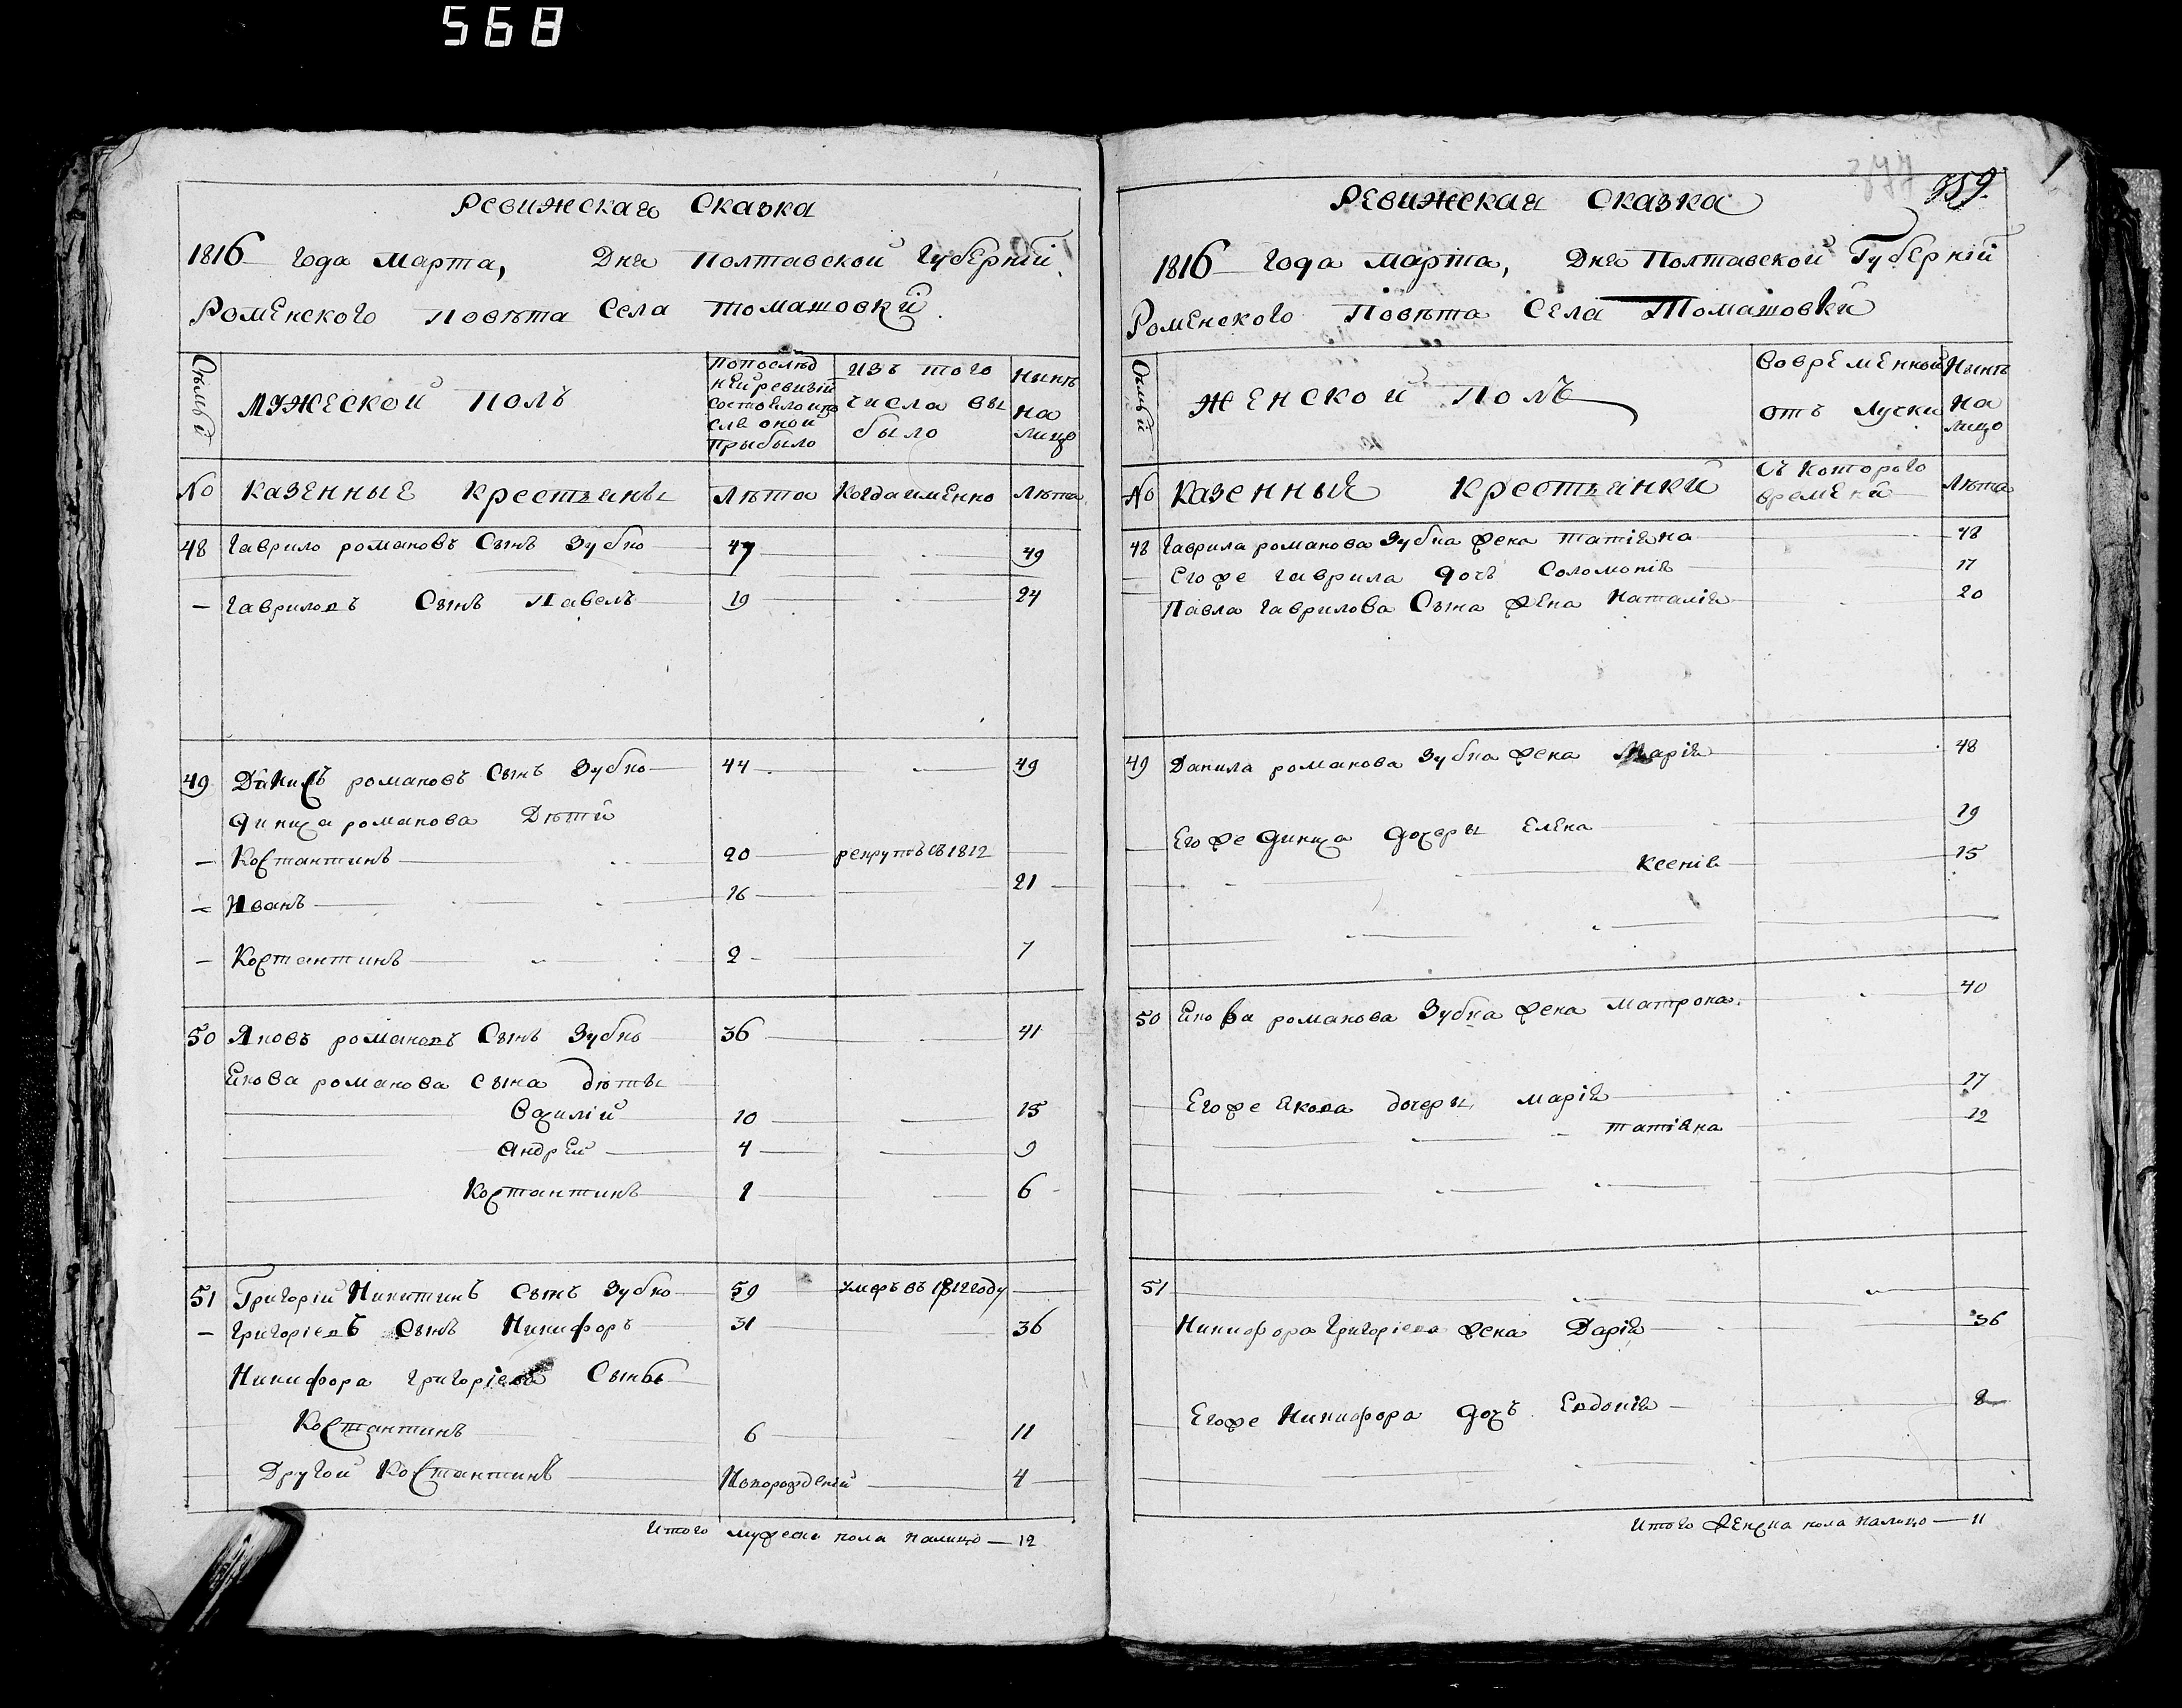 568
Ревижская Сказка
1816 года марта, Дня Полтавской Губерній
Роменского повѣта Села томашовкй
Сѣмьй
мужеской полъ
попослѣд
ней ревизій
состояло ипо
слѣ оной
прыбыло
изъ того
числа вы
было
нынѣ
на
лицо
No казенные крестьяны Лѣта Когда именно Лѣта
48 Гаврило романовъ Сынъ Зубко 47 49
— Гавриловъ Сынъ Павелъ 19 24
49 Данилъ романовъ Сынъ Зубко 44 49
романова Дѣтй
— Костантинъ 20 рекрутъ съ 1812
— Иванъ 16 21
— Костантинъ 2 7
50 Яковъ романовъ Сынъ Зубко 36 41
Якова романова сына дѣты
Василій 10 15
Андрей 4 9
Костантинъ 1 6
51 Григорій Никитинъ Сынъ Зубко 59 умеръ въ 1812 году
— Григоріевъ Сынъ Никифоръ 31 36
Никифора Григоріева Сыны
Костантинъ 6 11
Другой Костантинъ Новорожденій 4
Итого мужеска пола налицо — 12
377
359.
1
Ревижская Сказка
1816 года марта, Дня Полтавской Губерній
Роменского Повѣта Села Томашовкй
Сѣмьй
Женской полъ
Вовременной
отъ лучки
Нынѣ
на
лицо
No Казенныя крестьянкй
Съ которого
временй
Лѣта
48 Гаврила романова Зубка жена татіяна 48
Егоже гаврила дочь Соломонія 17
Павла гаврилова Сына жена Наталія 20
49 Данила романова Зубка жена Марія 48
Егоже дочеры Елена 19
Ксенія 15
50 Якова романова Зубка жена матрона. 40
Егоже Якова дочеры марія 17
татіяна 12
51
Никифора Григоріева жена Дарія 36
Егоже Никифора дочъ Евдокія 8
Итого женска пола налицо — 11